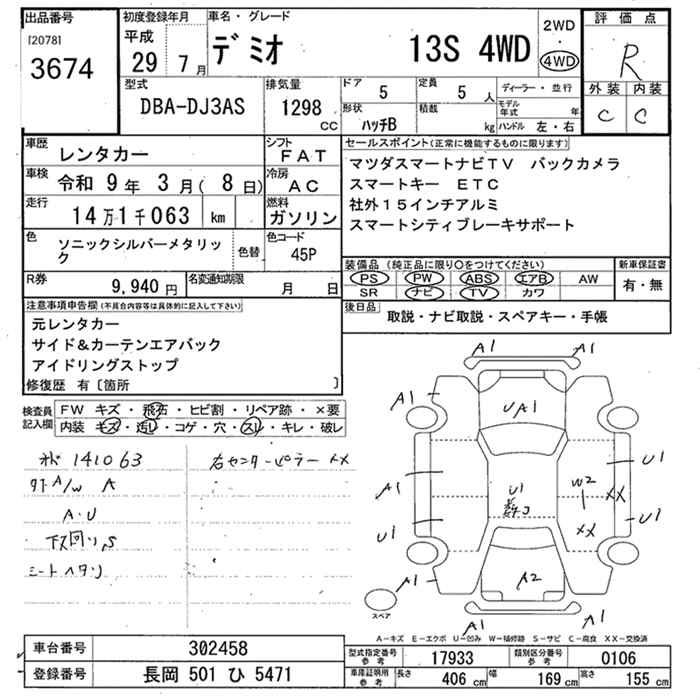 出品番号
[2078]
3674
初度登録年月
平成
29 年 7 月
車名・グレード
デミオ 13S 4WD
2WD
4WD
評価点
R
外装 内装
C C
型式
DBA-DJ3AS
排気量
1298 cc
ドア 5
定員 5 人
形状 ハッチB
積載 kg
ディーラー・並行
モデル年式 年
ハンドル 左・右
車歴 レンタカー
シフト FAT
車検 令和 9 年 3 月( 8 日)
冷房 AC
走行 14万1千063 km
燃料 ガソリン
色 ソニックシルバーメタリック
色替
色コード 45P
R券 9,940 円
名変通知期限 月 日
セールスポイント(正常に機能するものに限ります)
マツダスマートナビTV バックカメラ
スマートキー ETC
社外15インチアルミ
スマートシティブレーキサポート
装備品 (純正品に限り○をつけてください)
新車保証書
PS PW ABS エアB AW
SR ナビ TV カワ
有・無
後日品
取説・ナビ取説・スペアキー・手帳
注意事項申告欄(不具合内容等は具体的に記入して下さい)
元レンタカー
サイド&カーテンエアバック
アイドリングストップ
修復歴 有〔箇所 〕
検査員記入欄
FW キズ・飛石・ヒビ割・リペア跡・×要
内装 キズ・汚レ・コゲ・穴・スレ・キレ・破レ
141063
右センターピラー XX
外 A/W A
A・U
下回り S
シートヘタリ
A1 A1
A1
U A1
A1
U1
U1
W2
XX
XX
U1
U1
A1
A2
A1
A1 A1
スペア
A-キズ E-エクボ U-凹み W-補修跡 S-サビ C-腐食 XX-交換済
車台番号 302458
登録番号 長岡 501 ひ 5471
型式指定番号 参考 17933
類別区分番号 参考 0106
車庫証明用 参考 長さ 406 cm 幅 169 cm 高さ 155 cm